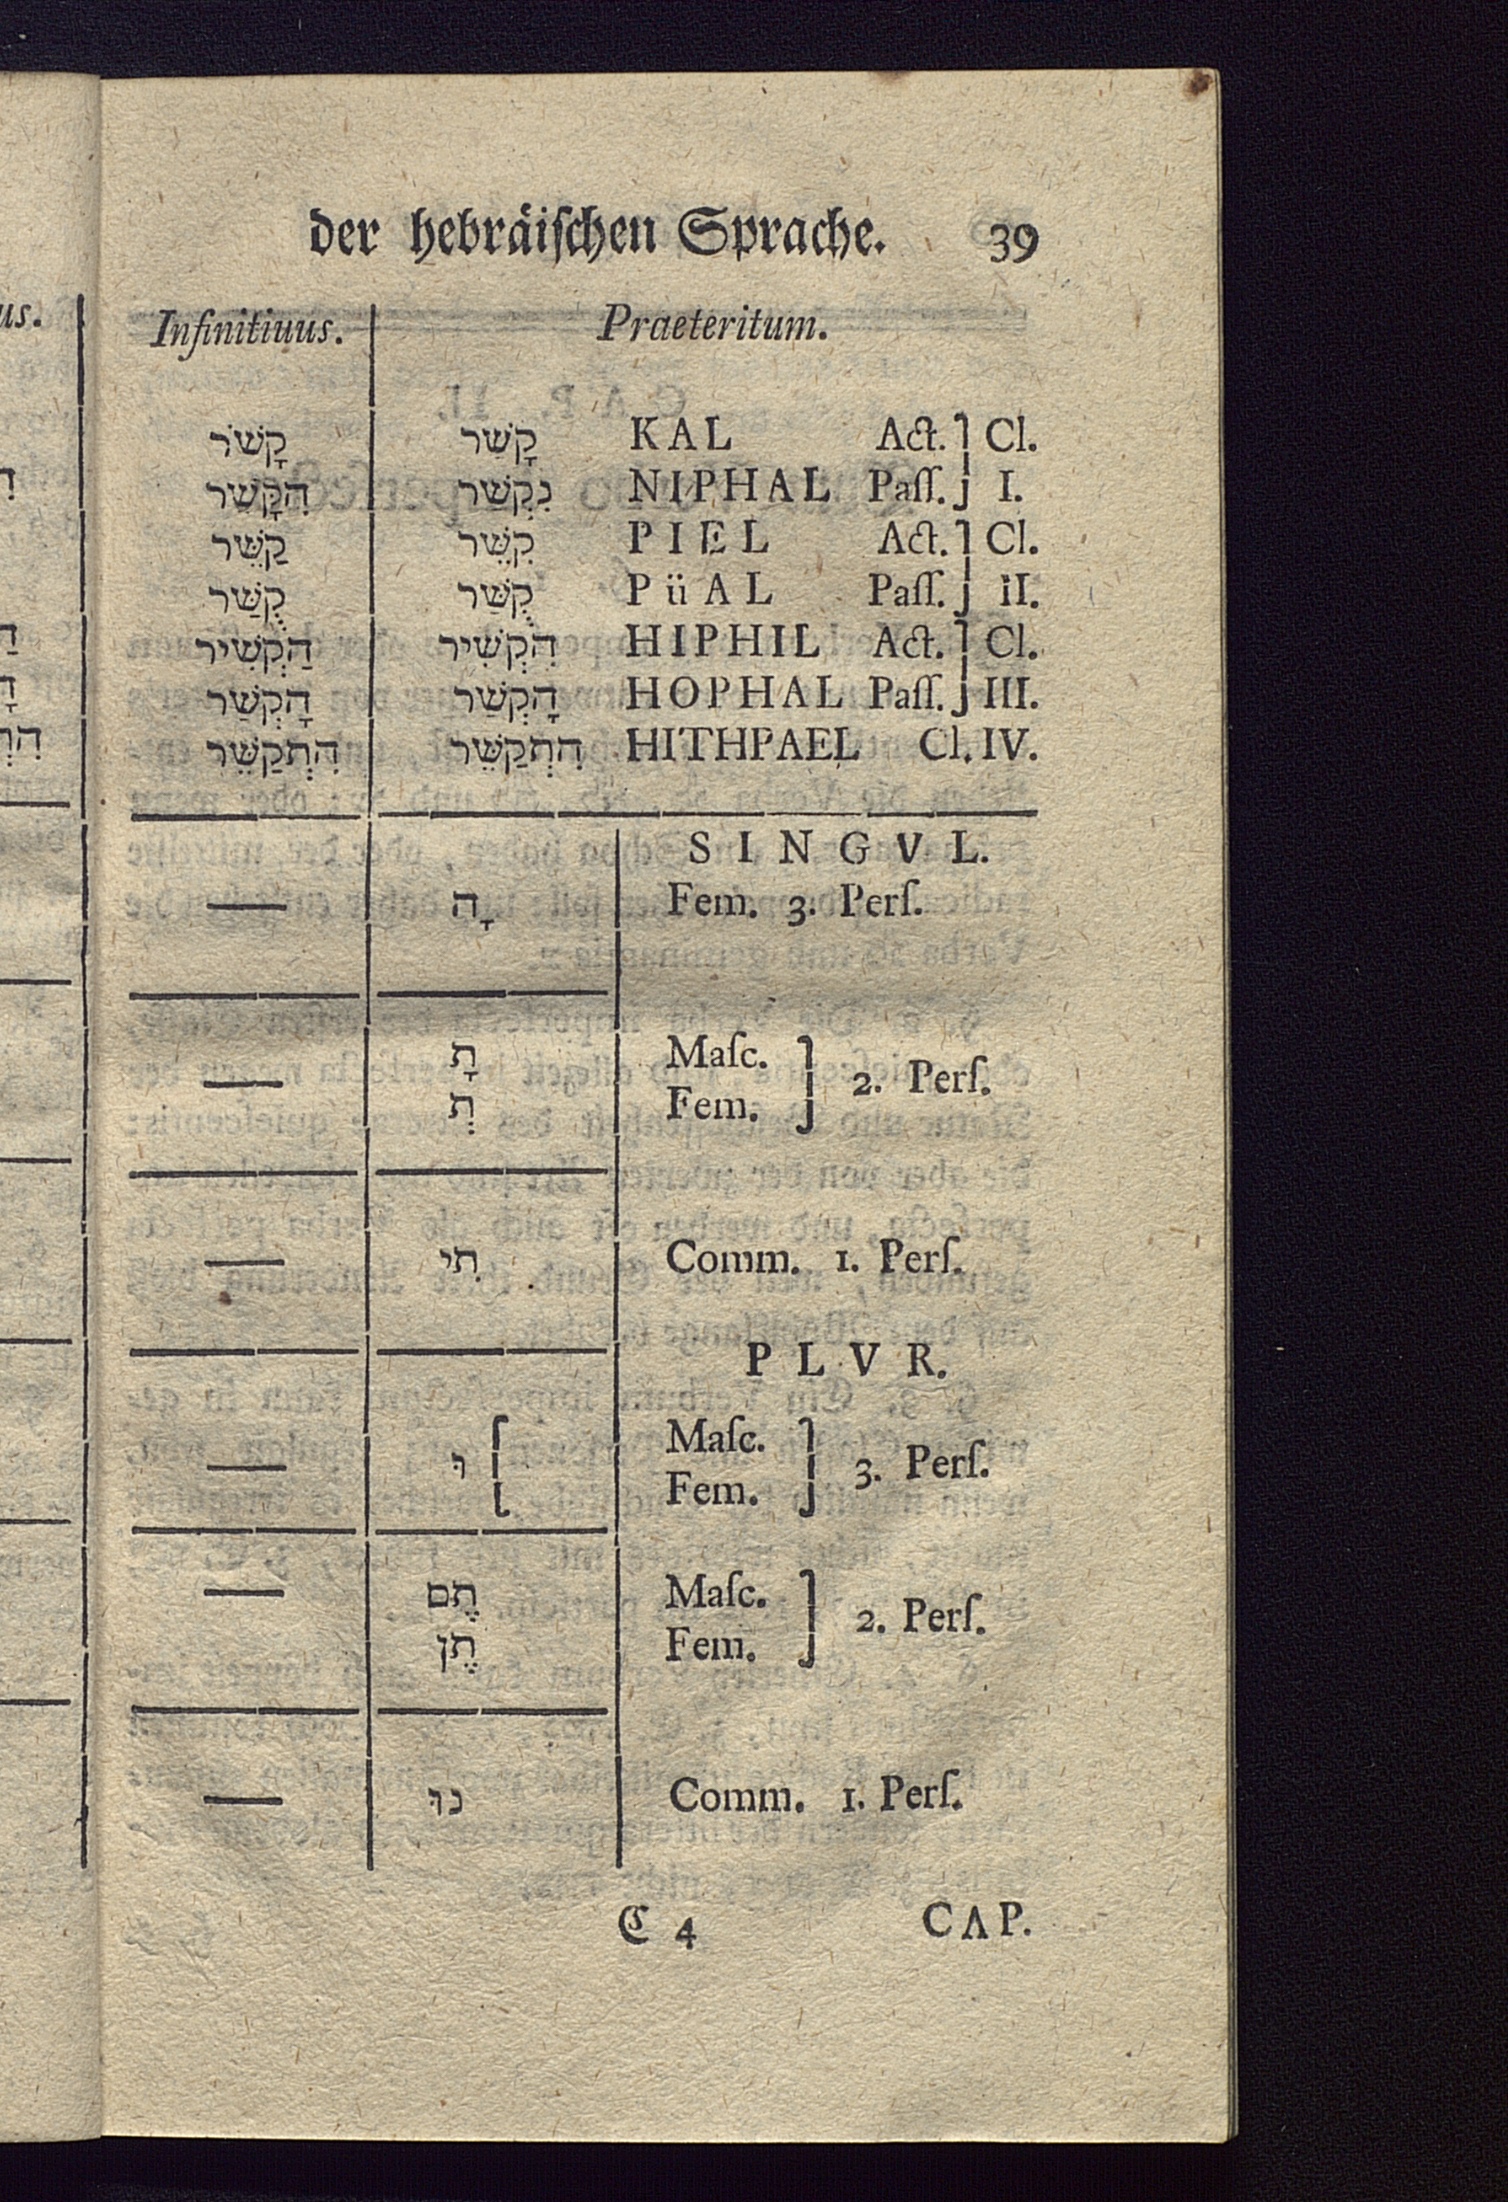 der hebräiſchen Sprache. 39
us. Infinitiuus. Praeteritum.
קָשׁוֹר קָשַׁר KAL Act. Cl.
הִקָּשֵׁר נִקְשַׁר NIPHAL Paſſ. I.
קַשֵּׁר קִשֵּׁר PIEL Act. Cl.
קֻשַּׁר קֻשַּׁר PüAL Paſſ. II.
הַקְשִׁיר הִקְשִׁיר HIPHIL Act. Cl.
הָקְשַׁר הָקְשַׁר HOPHAL Paſſ. III.
הִתְקַשֵּׁר הִתְקַשֵּׁר HITHPAEL Cl. IV.
SINGVL.
— ָה Fem. 3. Perſ.
תָ Maſc.
— 2. Perſ.
תְ Fem.
— תִי Comm. 1. Perſ.
PLVR.
Maſc.
— וּ 3. Perſ.
Fem.
— תֶם Maſc.
2. Perſ.
תֶן Fem.
— נוּ Comm. 1. Perſ.
C 4 CAP.